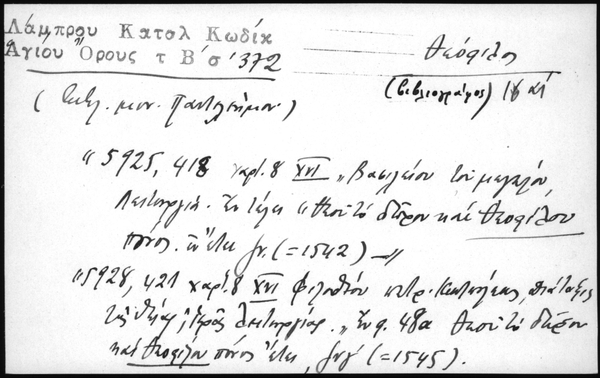 Λάμπρου Κατσλ Κωδίκ
Ἁγίου Ὄρους τ Β´ σ´ 372
Θεόφιλος
(βιβλιογράφος) 16 αἰ
(βιβλ. μον. Παντελεήμον.)
"5925, 418 χαρτ. 8 XVI „Βασιλείου τοῦ μεγάλου
Λειτουργία. Ἐν τέλει "Θεοῦ τὸ δῶρον καὶ Θεοφίλου
πόνος. ἐν ἔτει ζν. (=1542) —"
"5928, 421 χαρτ. 8 XVI Φιλοθέου πατρ. Κωνπόλεως, διάταξις
τῆς θείας ἱερᾶς λειτουργίας. „Ἐν φ. 48α Θεοῦ τὸ δῶρον
καὶ Θεοφίλου πόνος ἔτει, ζνγ´ (=1545).